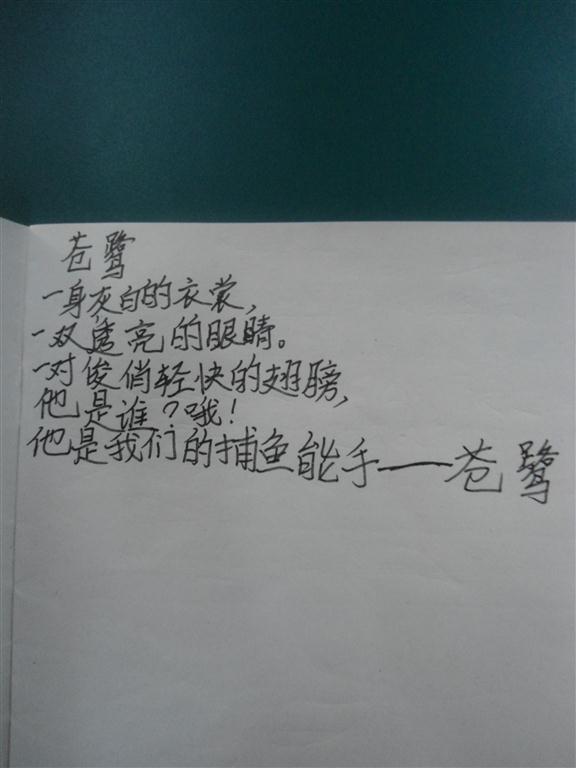 苍鹭
一身灰白的衣裳，
一双透亮的眼睛。
一对俊俏轻快的翅膀，
他是谁？哦！
他是我们的捕鱼能手——苍鹭